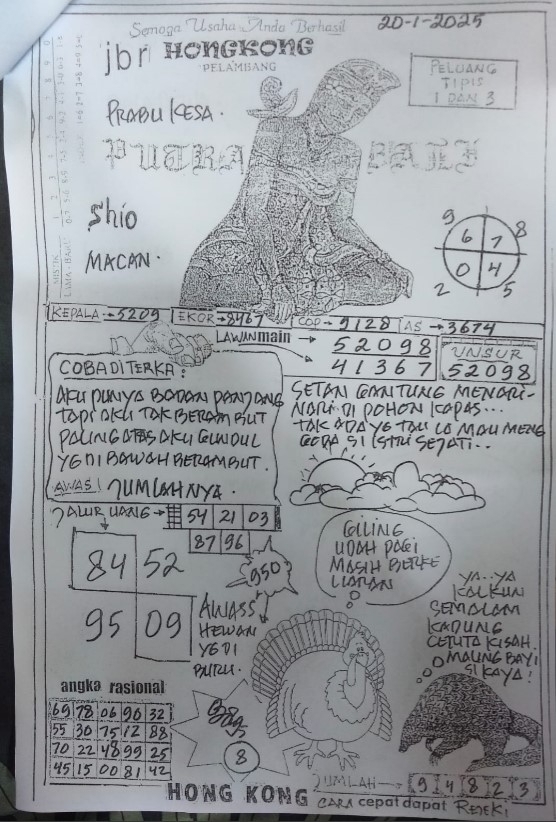 Semoga Usaha Anda Berhasil
20-1-2025
jbr HONGKONG
PELAMBANG
PELUANG
TIPIS
1 DAN 3
PRABU KESA.
PUTRA BALI
Shio
MACAN.
9 8
6 7
0 4
2 5
KEPALA → 5209 EKOR → 8467 COP → 9128 AS → 3674
LAWAN main → 52098
41367
UNSUR
52098
COBA DITERKA:
AKU PUNYA BADAN PANJANG
TAPI AKU TAK BERAMBUT
PALING ATAS AKU GUNDUL
YG DI BAWAH BERAMBUT.
AWAS! JUMLAHNYA.
SETAN GANTUNG MENARI-
NARI DI POHON KAPAS...
TAK ADA YG TAU LO MAU MENG
GODA SI ISTRI SEJATI..
JALUR UANG → 54 21 03
87 96
84 52
95 09
950
GILING
UDAH PAGI
MASIH BERKE
LIARAN
AWASS
HEWAN
YG DI
BURU.
YA..YA
KALKUN
SEMALAM
KADUNG
CETUTA KISAH.
MAUNG BAYI
SI KAYA!
angka rasional
69 78 06 90 32
55 30 75 12 88
70 22 48 99 25
45 15 00 81 42
8
JUMLAH → 9 4 8 2 3
HONG KONG CARA cepat dapat REJEKI